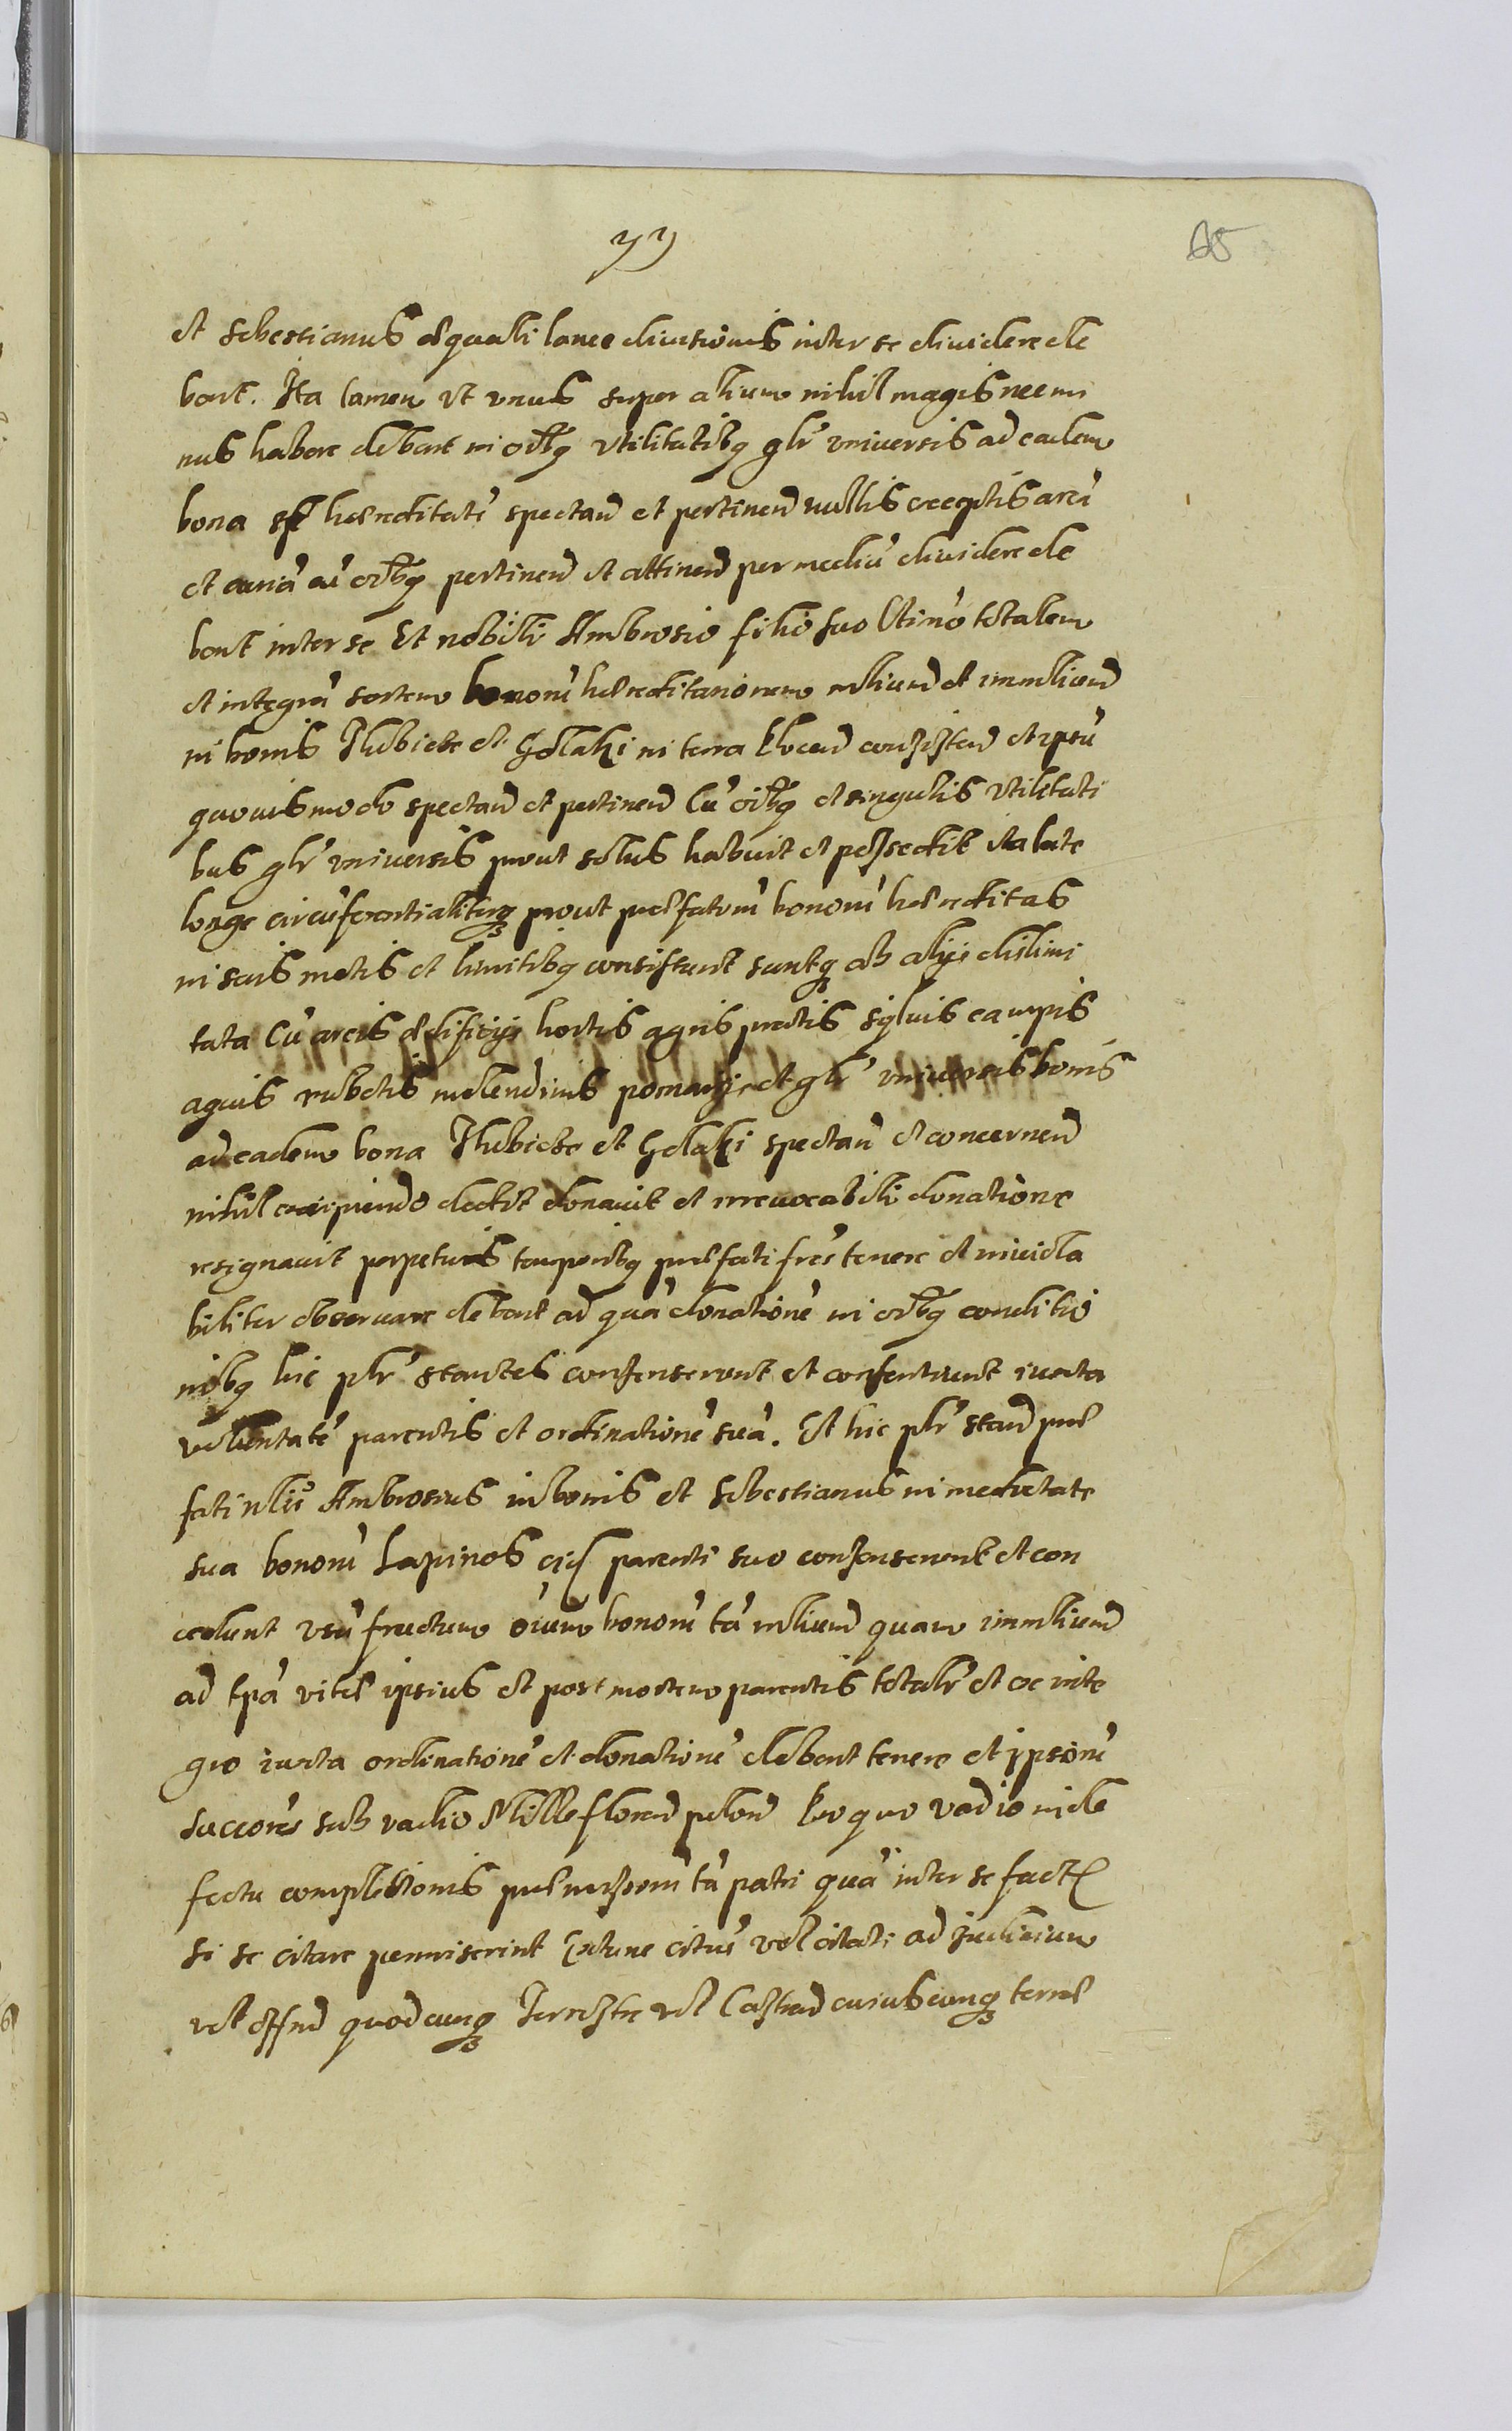 65
et Sebestianus æquali lance divisionis inter se dividere de
bent. Ita tamen ut unus super alium nihil magis nec mi
nus habere debent in oibq utilitatibq glr universis ad eadem
bona seu hæreditatē spectand et pertinend nullis exceptis
et cū oibq pertinend et attinend per mediū dividere de
bent inter se Et nobili Ambrosio filio suo totalem
et integrā sortem bonorū hæreditariorum mliund et immliund
in bonis Thubicze et Golaki in terra consisten et ipsū
quovismodo spectand et pertinend Cū oibq et singulis utilitati
bus glr universis prout solus habuit et possedit ita late
longe circūferentialiterq prout præfatorū bonorū hæreditas
in suis metis et limitibq consistunt suntq ab alijs dislimi
tata Cū areis ædificijs hortis agris pratis sylvis campis
aquis rubetis molendinis pomarijs et glr universis bonis
ad eadem bona Thubicze et Golaki spectan et concernend
nihil excipiendo dedit donavit et irrevocabili donatione
resignavit perpetuis temporibq præfati frēs tenere et inviola
biliter observare debent ad quā donationē in oibq conditio
nibq hic plr stantes consenserunt et consentiunt iuxta
voluntatē parentis et ordinationē suā. Et hic plr stand præ
fati nbles Ambrosius in bonis et Sebestianus in medietate
sua bonorū Lapinos parenti suo consenserunt et con
cedunt usū fructum oium bonorū tā mliund quam immliund
ad tpā vitæ ipsius et post mortem parentis totalr et ex inte
gro iuxta ordinationē et donationē debent tenere et ipsorū
succores sub vadio Mille floren polon Pro quo vadio in de
fectu completionis præmissorū tā patri quā inter se fact
si se citare permiserint Extunc citus vel citati ad Judicium
vel offnd quodcunq Terrestre vel Castren cuiuscunq terræ